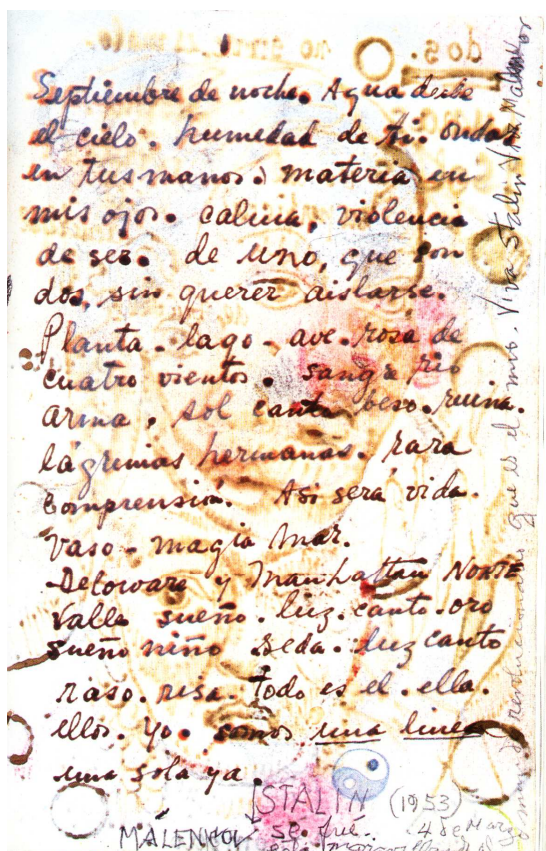 Septiembre de noche. Agua desde
el cielo. humedad de ti. ondas
en tus manos. materia en
mis ojos. calma, violencia
de ser. de uno, que son
dos, sin querer aislarse.
Planta. lago. ave. rosa de
cuatro vientos. sangre rio
arma, sol canto beso. ruina.
lágrimas hermanas. rara
comprensión. Asi será vida.
Vaso - magia Mar.
Deloware y Manhattan NORTE
Valle sueño. luz. canto. oro
sueño niño seda. luz canto
raso. risa. todo es el. ella.
ellos. yo. somos una linea
una sola ya
STALIN (1953)
MALENKOV se fué. 4 de Marzo
revolucionario que es el mio. Viva Stalin Viva Malenkov
dos.